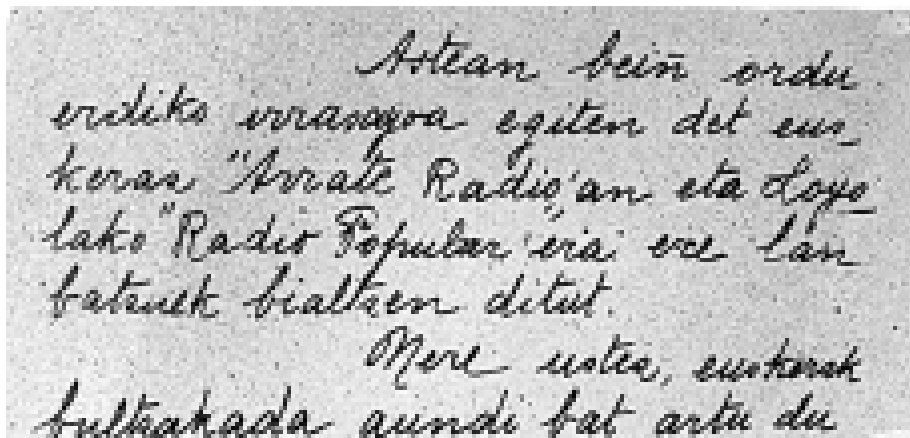 Astean beiñ ordu
erdiko irrasayoa egiten det eus-
keraz "Arrate Radio'an eta Loyo
lako "Radio Popular'era ere lan
batzuek bialtzen ditut.
Nere ustez, euskerak
bultzakada aundi bat artu du